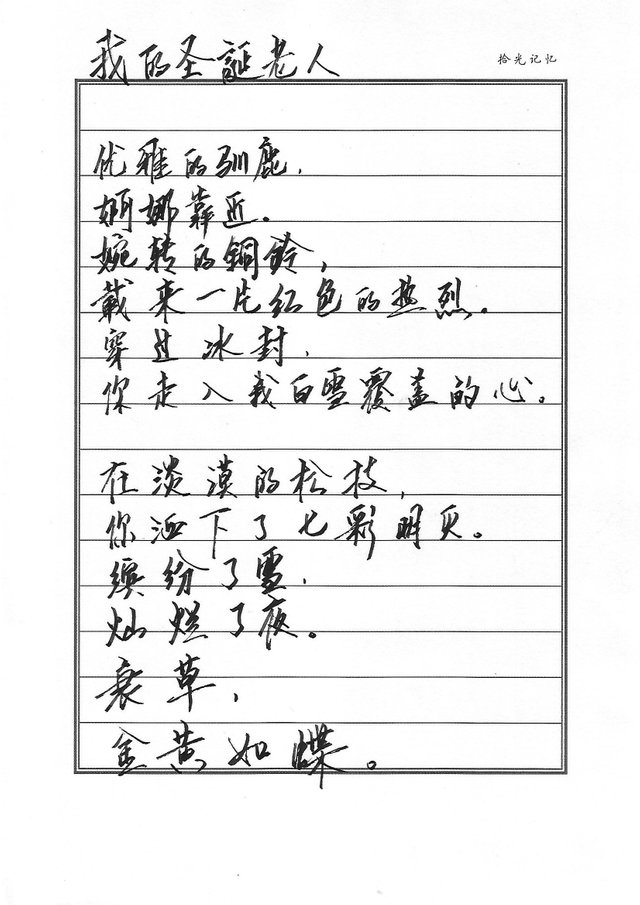 我的圣誕老人
拾光记忆
优雅的驯鹿，
婀娜靠近。
婉转的铜鈴，
載来一片红色的热烈。
穿过冰封，
你走入我白雪覆盖的心。
在淡漠的松枝，
你洒下了七彩明灭。
缤纷了雪，
灿烂了夜。
衰草，
金黄如蝶。